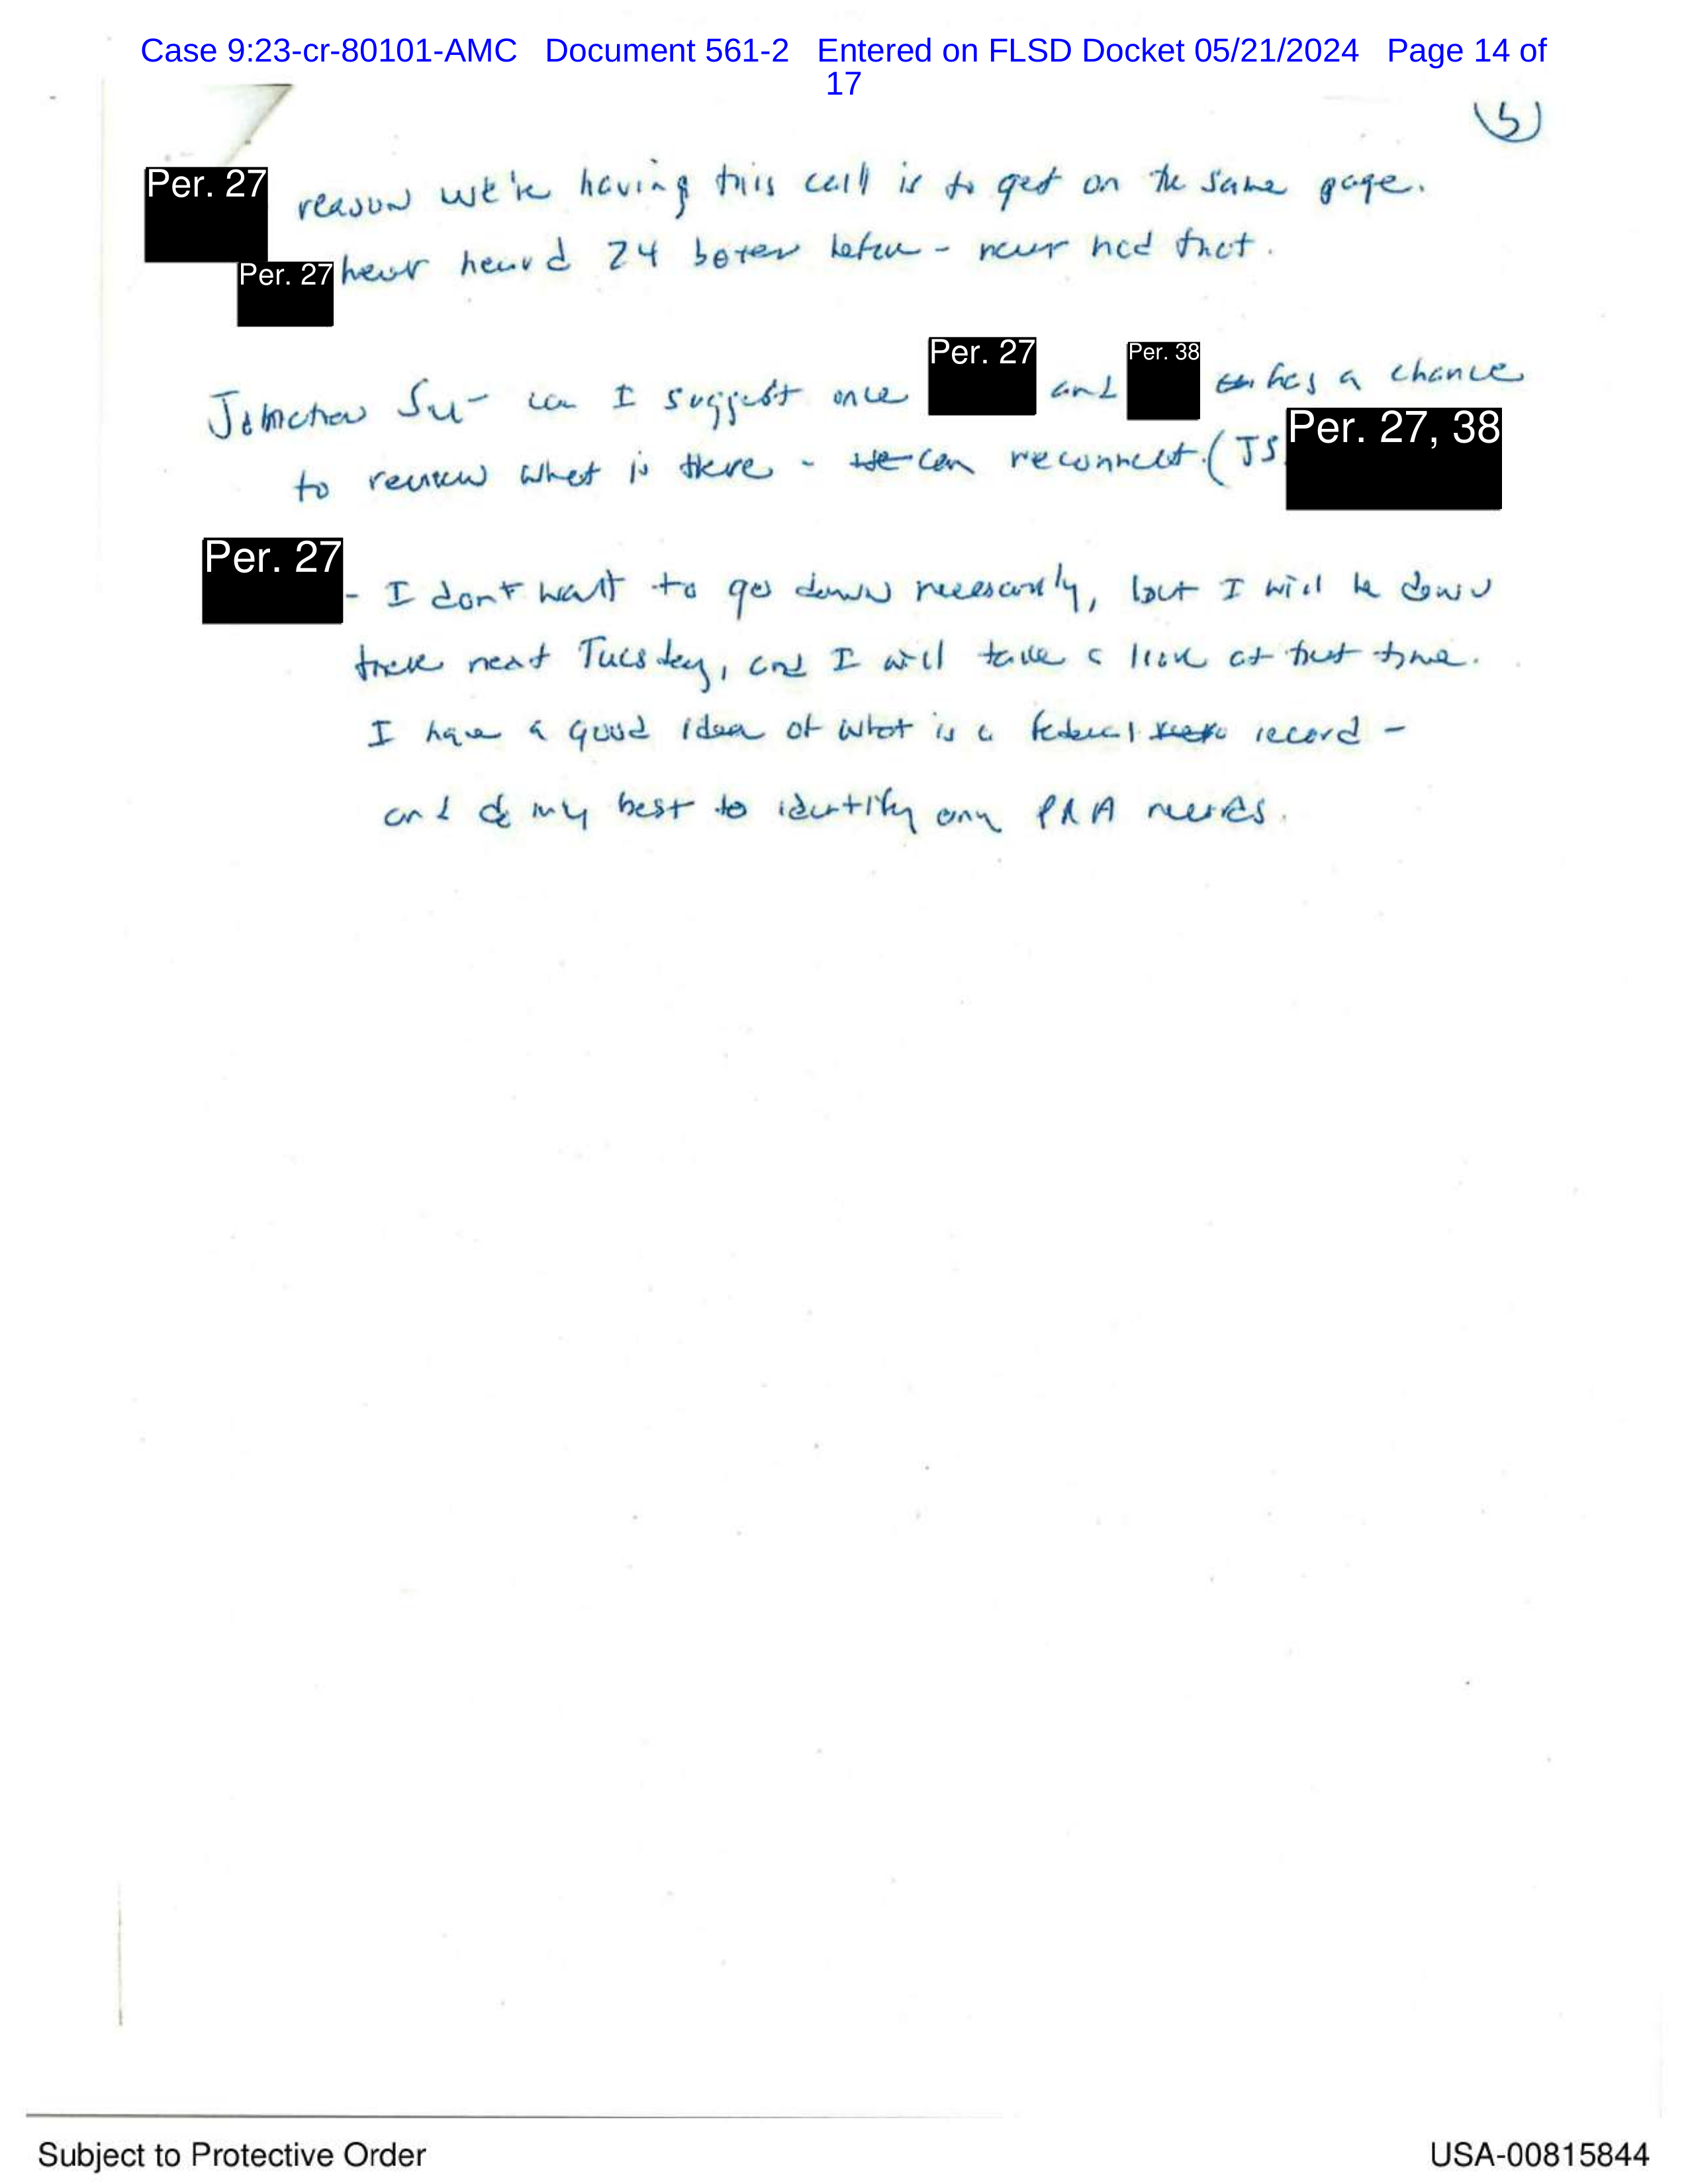 Case 9:23-cr-80101-AMC Document 561-2 Entered on FLSD Docket 05/21/2024 Page 14 of
17
(5)
Per. 27 reason we're having this call is to get on the same page.
Per. 27 heard 24 boxes before - never had that.
Per. 27 Per. 38
Jonathan Su - can I suggest once and has a chance
to review what is there - we can reconnect. (JS Per. 27, 38
Per. 27 - I don't want to go down necessarily, but I will be down
there next Tuesday, and I will take a look at that time.
I have a good idea of what is a federal record -
and do my best to identify any PRA
Subject to Protective Order USA-00815844